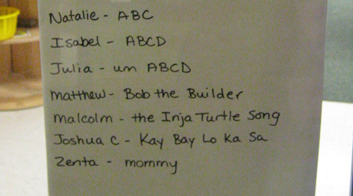 Natalie - ABC
Isabel - ABCD
Julia - um ABCD
Matthew - Bob the Builder
Malcolm - the Inja Turtle Song
Joshua C - Kay Bay Lo Ka Sa
Zenta - mommy